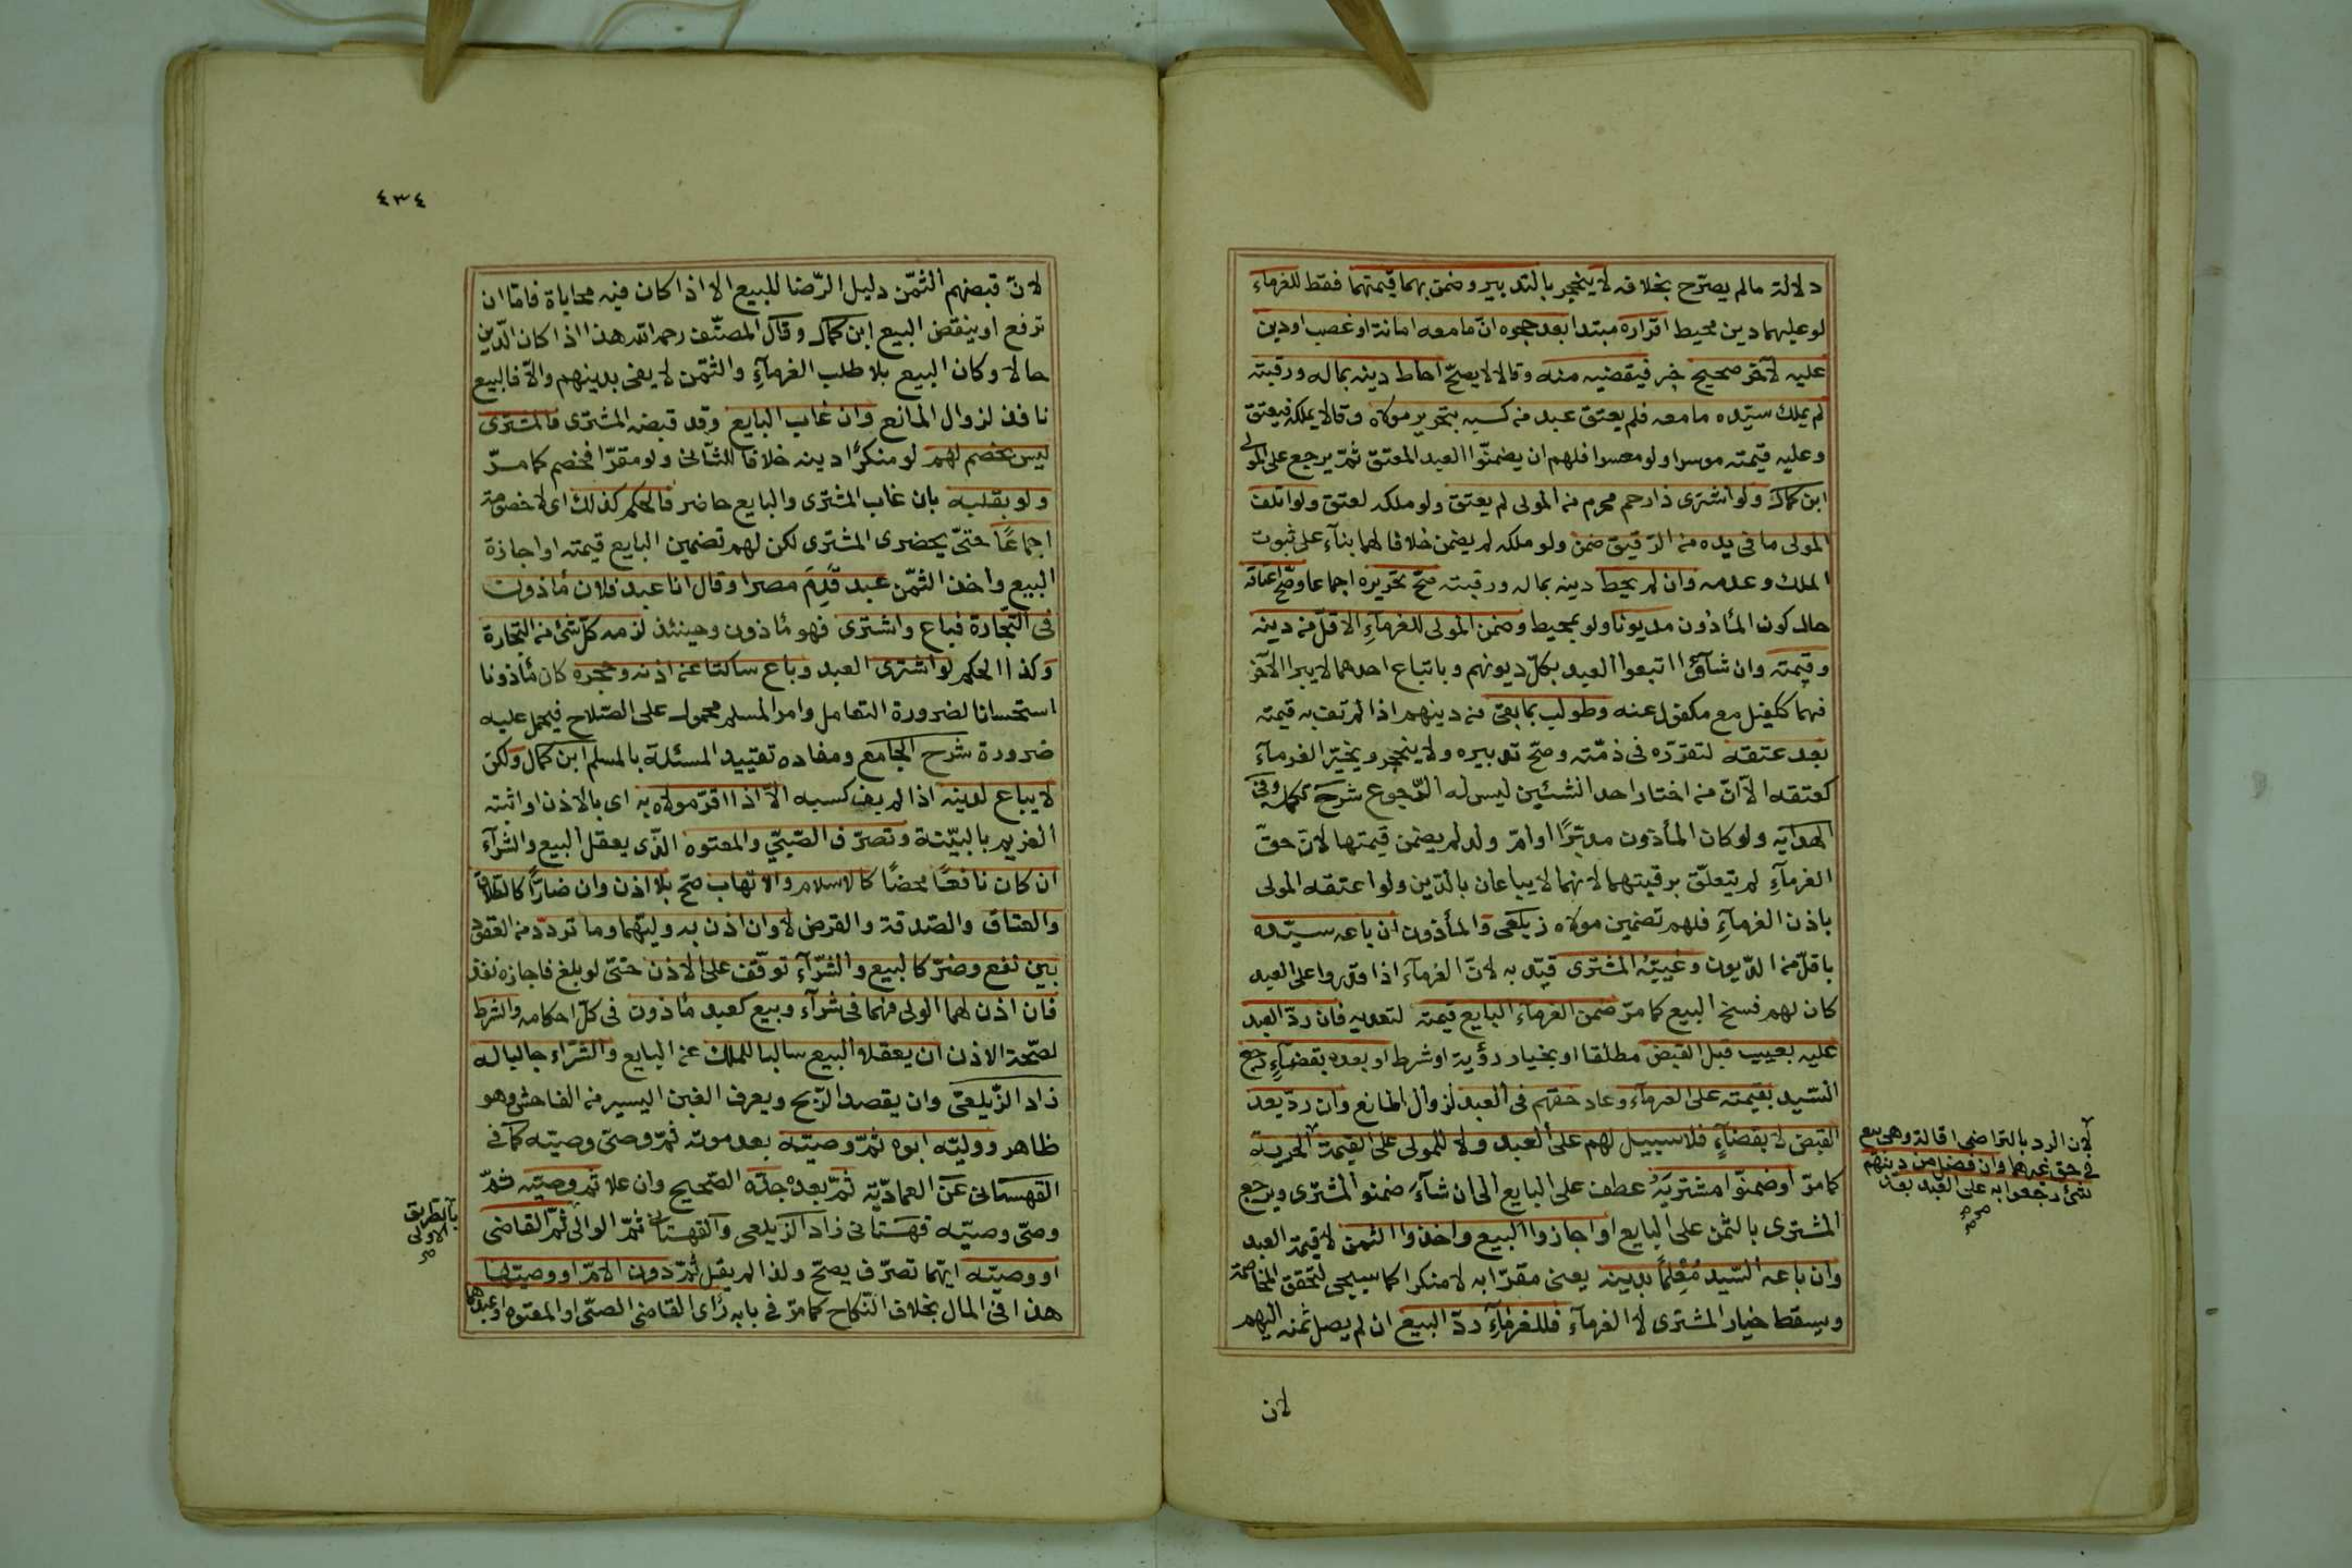 دلالة مالم يصرح بخلافه لا ينحجر بالتدبير وضمن بهما قيمتهما فقط للغرماء
لو عليهما دين محيط اقراره مبتدا بعد حجره ان ما معه امانة او غصب او دين
عليه لآخر صحيح فيقضيه منه وقالا لا يصح احاط دينه بماله ورقبته
لم يملك سيده ما معه فلم يعتق عبد من كسبه بتحرير مولاه وقالا يملكه فيعتق
وعليه قيمته موسرا ولو معسرا فلهم ان يضمنوا العبد المعتق ثم يرجع على المولى
ابن كمال ولو اشترى ذا رحم محرم من المولى لم يعتق ولو ملكه لعتق ولو اتلف
المولى ما فى يده من الرقيق ضمن ولو ملكه لم يضمن خلافا لهما بنآء على ثبوت
الملك وعدمه وان لم يحط دينه بماله ورقبته صح تحريره اجماعا وصح اعتاقه
حال كون المأذون مديونا ولو بمحيط وضمن المولى للغرمآء الاقل من دينه
وقيمته وان شآؤا اتبعوا العبد بكل ديونهم وباتباع احدهما لا يبرا الآخر
فهما ككفيل مع مكفول عنه وطولب بما بقى من دينهم اذا لم تف به قيمته
بعد عتقه لتقرره فى ذمته وصح تدبيره ولا ينحجر ويخير الغرمآء
كعتقه الا ان من اختار احد الشئين ليس له الرجوع شرح تكملة وفى
الهداية ولو كان المأذون مدبرا او ام ولد لم يضمن قيمتها لان حق
الغرمآء لم يتعلق برقبتهما لانهما لا يباعان بالدين ولو اعتقه المولى
باذن الغرمآء فلهم تضمين مولاه زيلعى والمأذون ان باعه سيده
باقل من الديون وغيبه المشترى قيد به لان الغرمآء اذا قدروا على العبد
كان لهم فسخ البيع كما مر ضمن الغرمآء البايع قيمته لتعديه فان رد العبد
عليه بعيب قبل القبض مطلقا او بخيار رؤية او شرط او بعده بقضآء رجع
السيد بقيمته على الغرمآء وعاد حقهم فى العبد لزوال المانع وان رد بعد
القبض لا بقضآء فلا سبيل لهم على العبد ولا للمولى على القيمة
كما مر او ضمنوا مشتريه عطف على البايع اى ان شآء ضمنو المشترى ويرجع
المشترى بالثمن على البايع او اجازوا البيع واخذوا الثمن لا قيمة العبد
وان باعه السيد معلما بدينه يعنى مقرا به لا منكرا كما سيجى لتحقق المخاصمة
ويسقط خيار المشترى لا الغرمآء فللغرمآء رد البيع ان لم يصل ثمنه اليهم
لان
لان الرد بالتراضى اقالة وهى بيع
فى حق غيرهما وان فضل من دينهم
شئ رجعوا به على العبد بعد
٤٣٤
لان قبضهم الثمن دليل الرضا للبيع الا اذا كان فيه محاباة فاما ان
ترفع او ينقض البيع ابن كمال وقال المصنف رحمه الله هذا اذا كان الدين
حالا وكان البيع بلا طلب الغرمآء والثمن لا يفى بدينهم والا فالبيع
نافذ لزوال المانع وان غاب البايع وقد قبضه المشترى فالمشترى
ليس بخصم لهم لو منكرا دينه خلافا للثانى ولو مقرا فخصم كما مر
ولو بقلبه بان غاب المشترى والبايع حاضر فالحكم كذلك اى لا خصومة
اجماعا حتى يحضرى المشترى لكن لهم تضمين البايع قيمته او اجازة
البيع واخذ الثمن عبد قدم مصرا وقال انا عبد فلان مأذون
فى التجارة فباع واشترى فهو مأذون وحينئذ لزمه كل شئ من التجارة
وكذا الحكم لو اشترى العبد وباع ساكتا عن اذنه وحجره كان مأذونا
استحسانا لضرورة التعامل وامر المسلم محمول على الصلاح فيحمل عليه
ضرورة شرح الجامع ومفاده تقييد المسئلة بالمسلم ابن كمال ولكن
لا يباع لدينه اذا لم يف كسبه الا اذا اقر مولاه به اى بالاذن او اثبته
الغريم بالبينة وتصرف الصبى والمعتوه الذى يعقل البيع والشرآء
ان كان نافعا محضا كالاسلام والاتهاب صح بلا اذن وان ضارا كالطلاق
والعتاق والصدقة والقرض لا وان اذن به وليهما وما تردد من العقود
بين نفع وضر كالبيع والشرآء توقف على الاذن حتى لو بلغ فاجازه نفذ
فان اذن لهما الولى فهما فى شرآء وبيع كعبد مأذون فى كل احكامه والشرط
لصحة الاذن ان يعقلا البيع سالبا للملك عن البايع والشرآء جالبا له
زاد الزيلعى وان يقصد الربح ويعرف الغبن اليسير من الفاحش وهو
ظاهر ووليه ابوه ثم وصيه بعد موته ثم وصى وصيه كما فى
القهستانى عن العمادية ثم بعده جده الصحيح وان علا ثم وصيه ثم
وصى وصيه قهستانى زاد الزيلعى والقهستانى ثم الوالى ثم القاضى
او وصيه ايهما تصرف يصح ولذا لم يقل ثم دون الام او وصيها
هذا فى المال بخلاف النكاح كما مر فى بابه رأى القاضى الصبى او المعتوه او عبدهما
بالطريق
الاولى